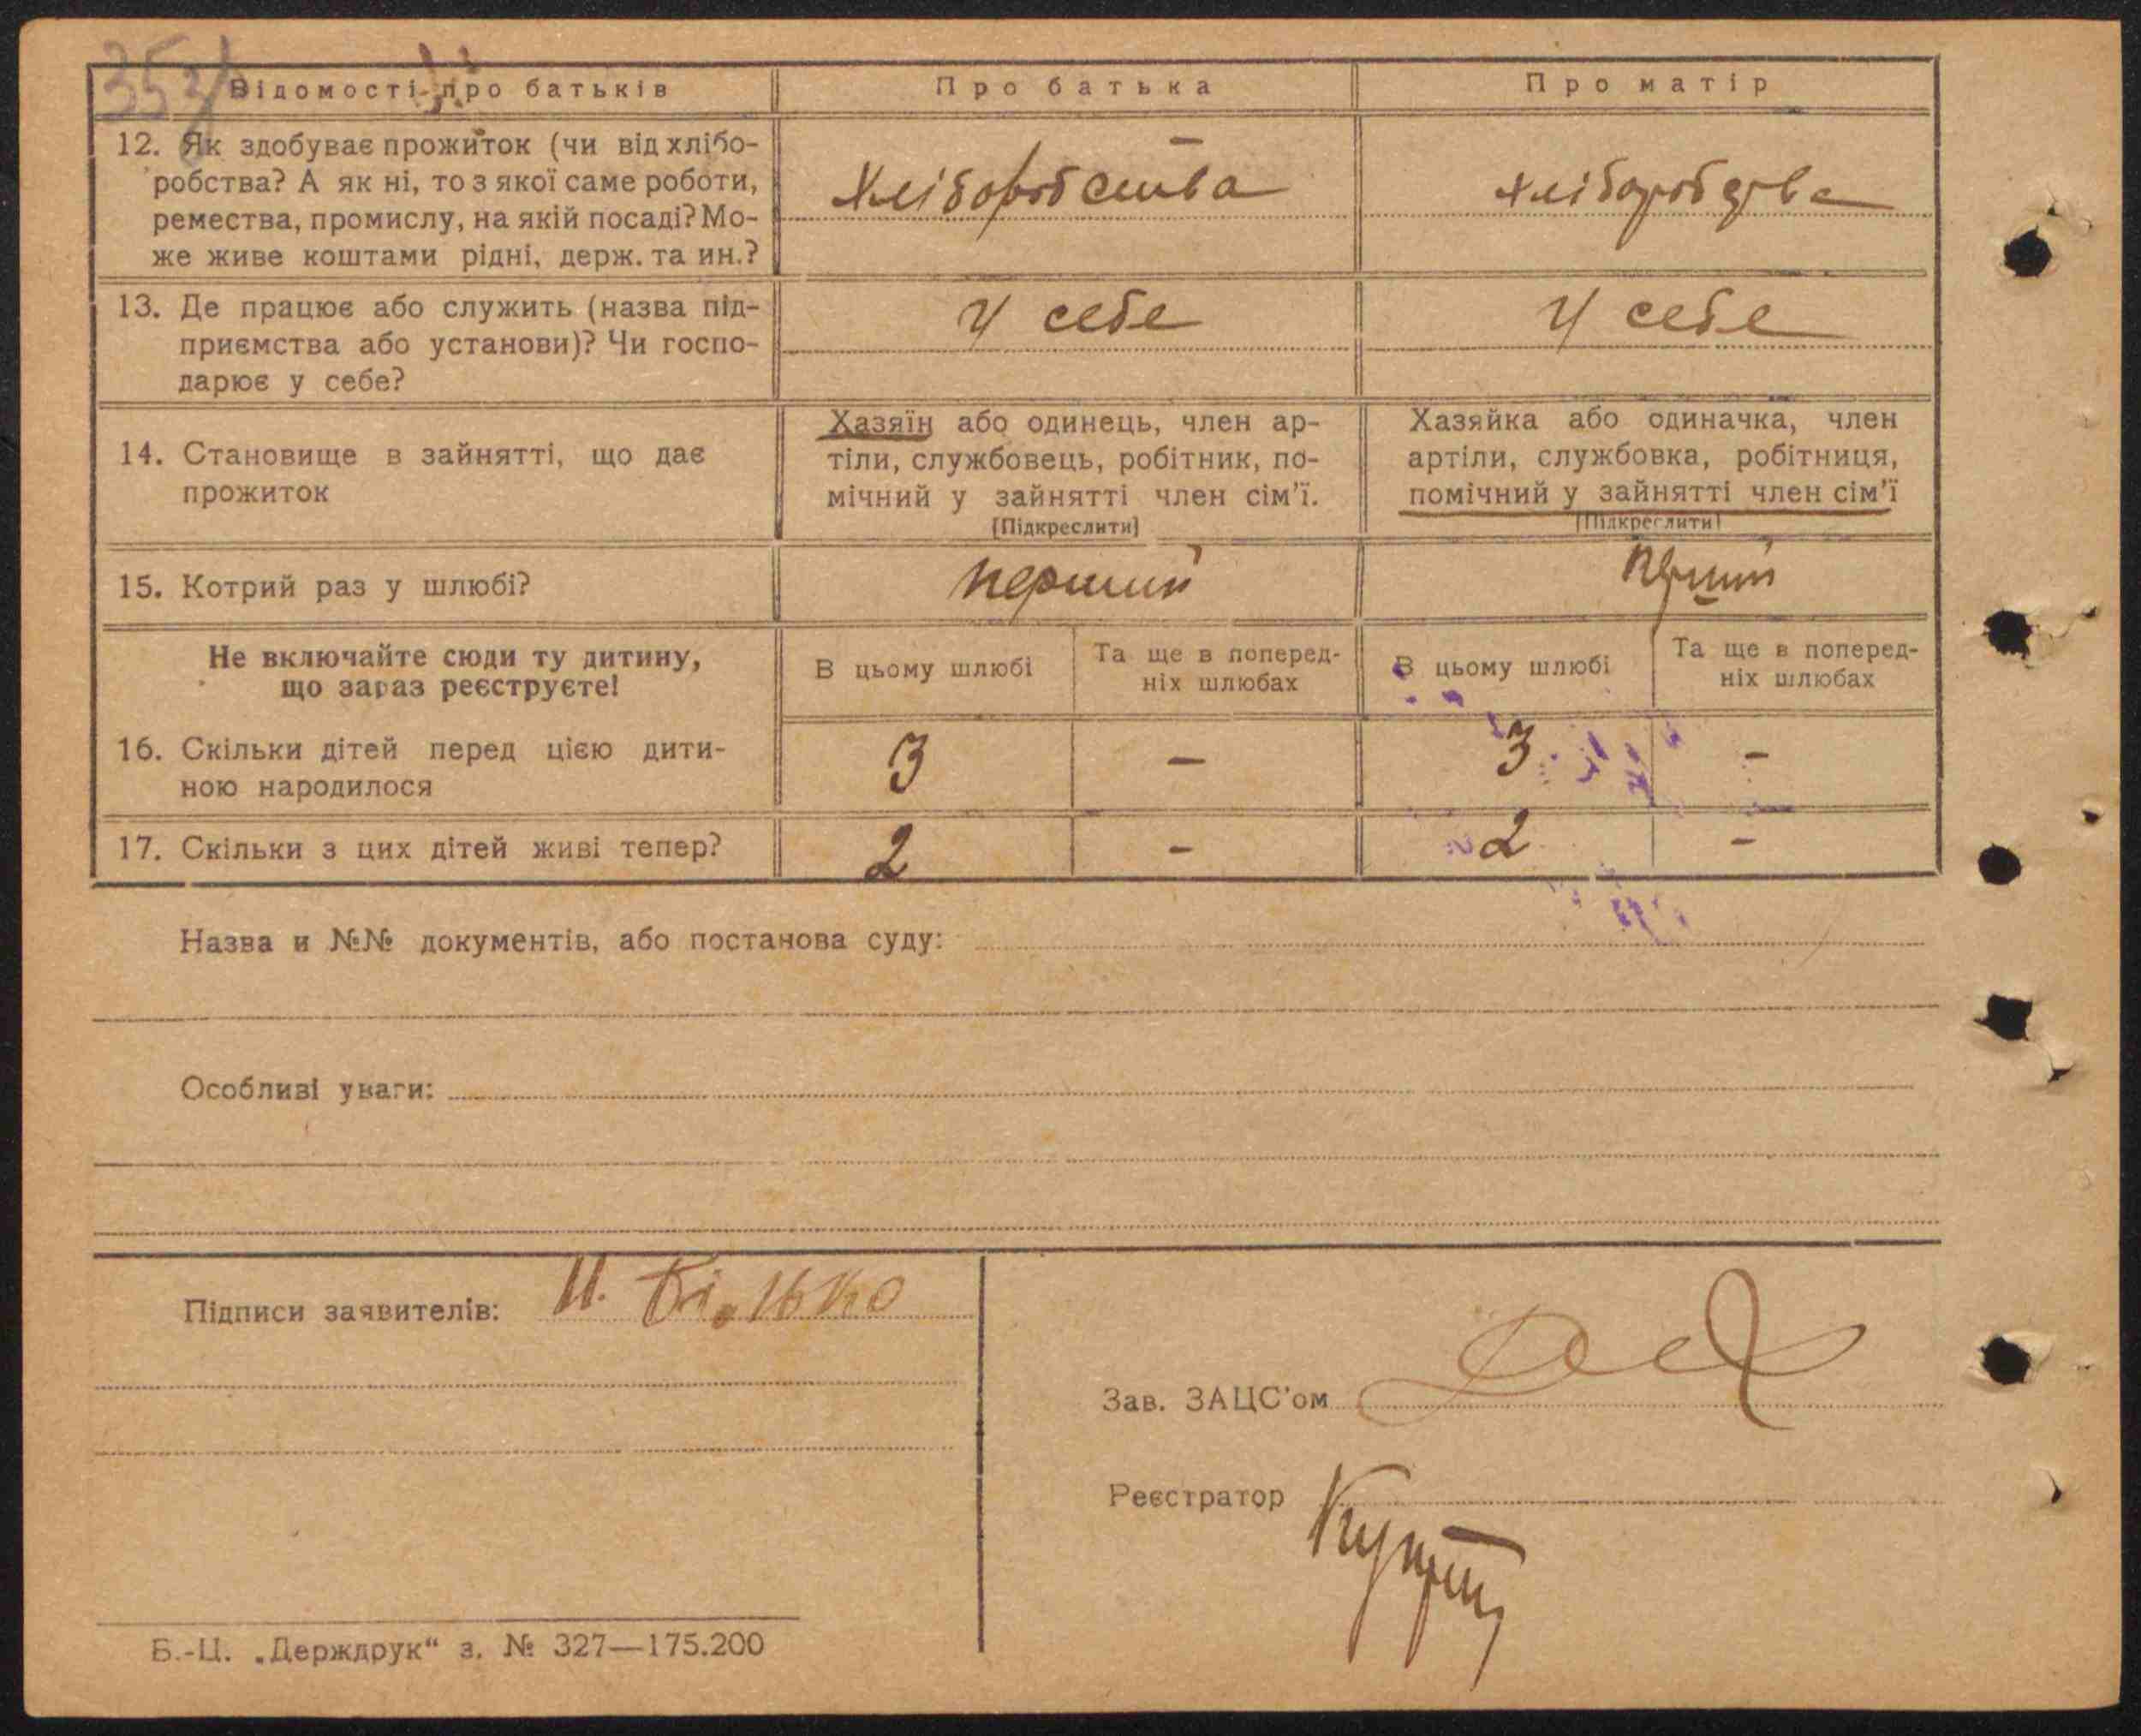 35
Відомості про батьків
Про батька
Про матір
12. Як здобуває прожиток (чи від хлібо-
робства? А як ні, то з якої саме роботи,
ремества, промислу, на якій посаді? Мо-
же живе коштами рідні, держ. та ин.?
Хліборобства
Хліборобства
13. Де працює або служить (назва під-
приємства або установи)? Чи госпо-
дарює у себе?
У себе
У себе
14. Становище в зайнятті, що дає
прожиток
Хазяїн або одинець, член ар-
тіли, службовець, робітник, по-
мічний у зайнятті член сім'ї.
[Підкреслити]
Хазяйка або одиначка, член
артіли, службовка, робітниця,
помічний у зайнятті член сім'ї
[Підкреслити]
15. Котрий раз у шлюбі?
перший
перший
Не включайте сюди ту дитину,
що зараз реєструєте!
В цьому шлюбі
Та ще в поперед-
ніх шлюбах
В цьому шлюбі
Та ще в поперед-
ніх шлюбах
16. Скільки дітей перед цією дити-
ною народилося
3 — 3 —
17. Скільки з цих дітей живі тепер?
2 — 2 —
Назва и №№ документів, або постанова суду:
Особливі уваги:
Підписи заявителів:
Зав. ЗАЦС'ом
Реєстратор
Б.-Ц. „Держдрук“ з. № 327—175.200